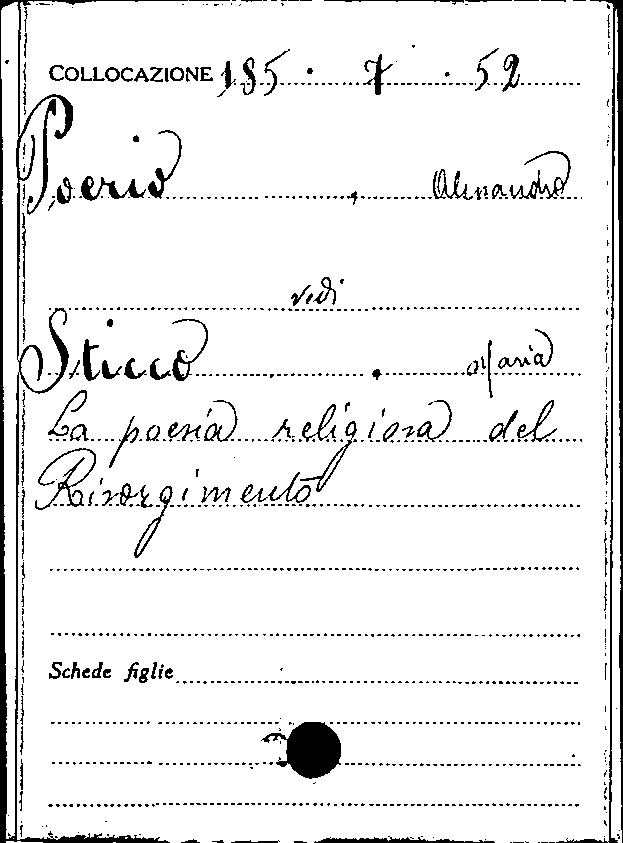 COLLOCAZIONE 185 . 7 . 52
Poerio , Alessandro
vedi
Sticco . Maria
La poesia religiosa del
Risorgimento
Schede figlie